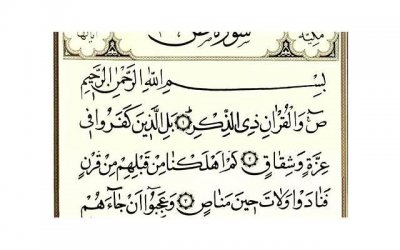 سورة ص
مكية
بِسْمِ اللّٰهِ الرَّحْمٰنِ الرَّحِيمِ
صٓ وَالْقُرْاٰنِ ذِي الذِّكْرِ ١ بَلِ الَّذِينَ كَفَرُوا فِي
عِزَّةٍ وَشِقَاقٍ ٢ كَمْ اَهْلَكْنَا مِنْ قَبْلِهِمْ مِنْ قَرْنٍ
فَنَادَوْا وَلَاتَ حِينَ مَنَاصٍ ٣ وَعَجِبُوا اَنْ جَاءَهُمْ